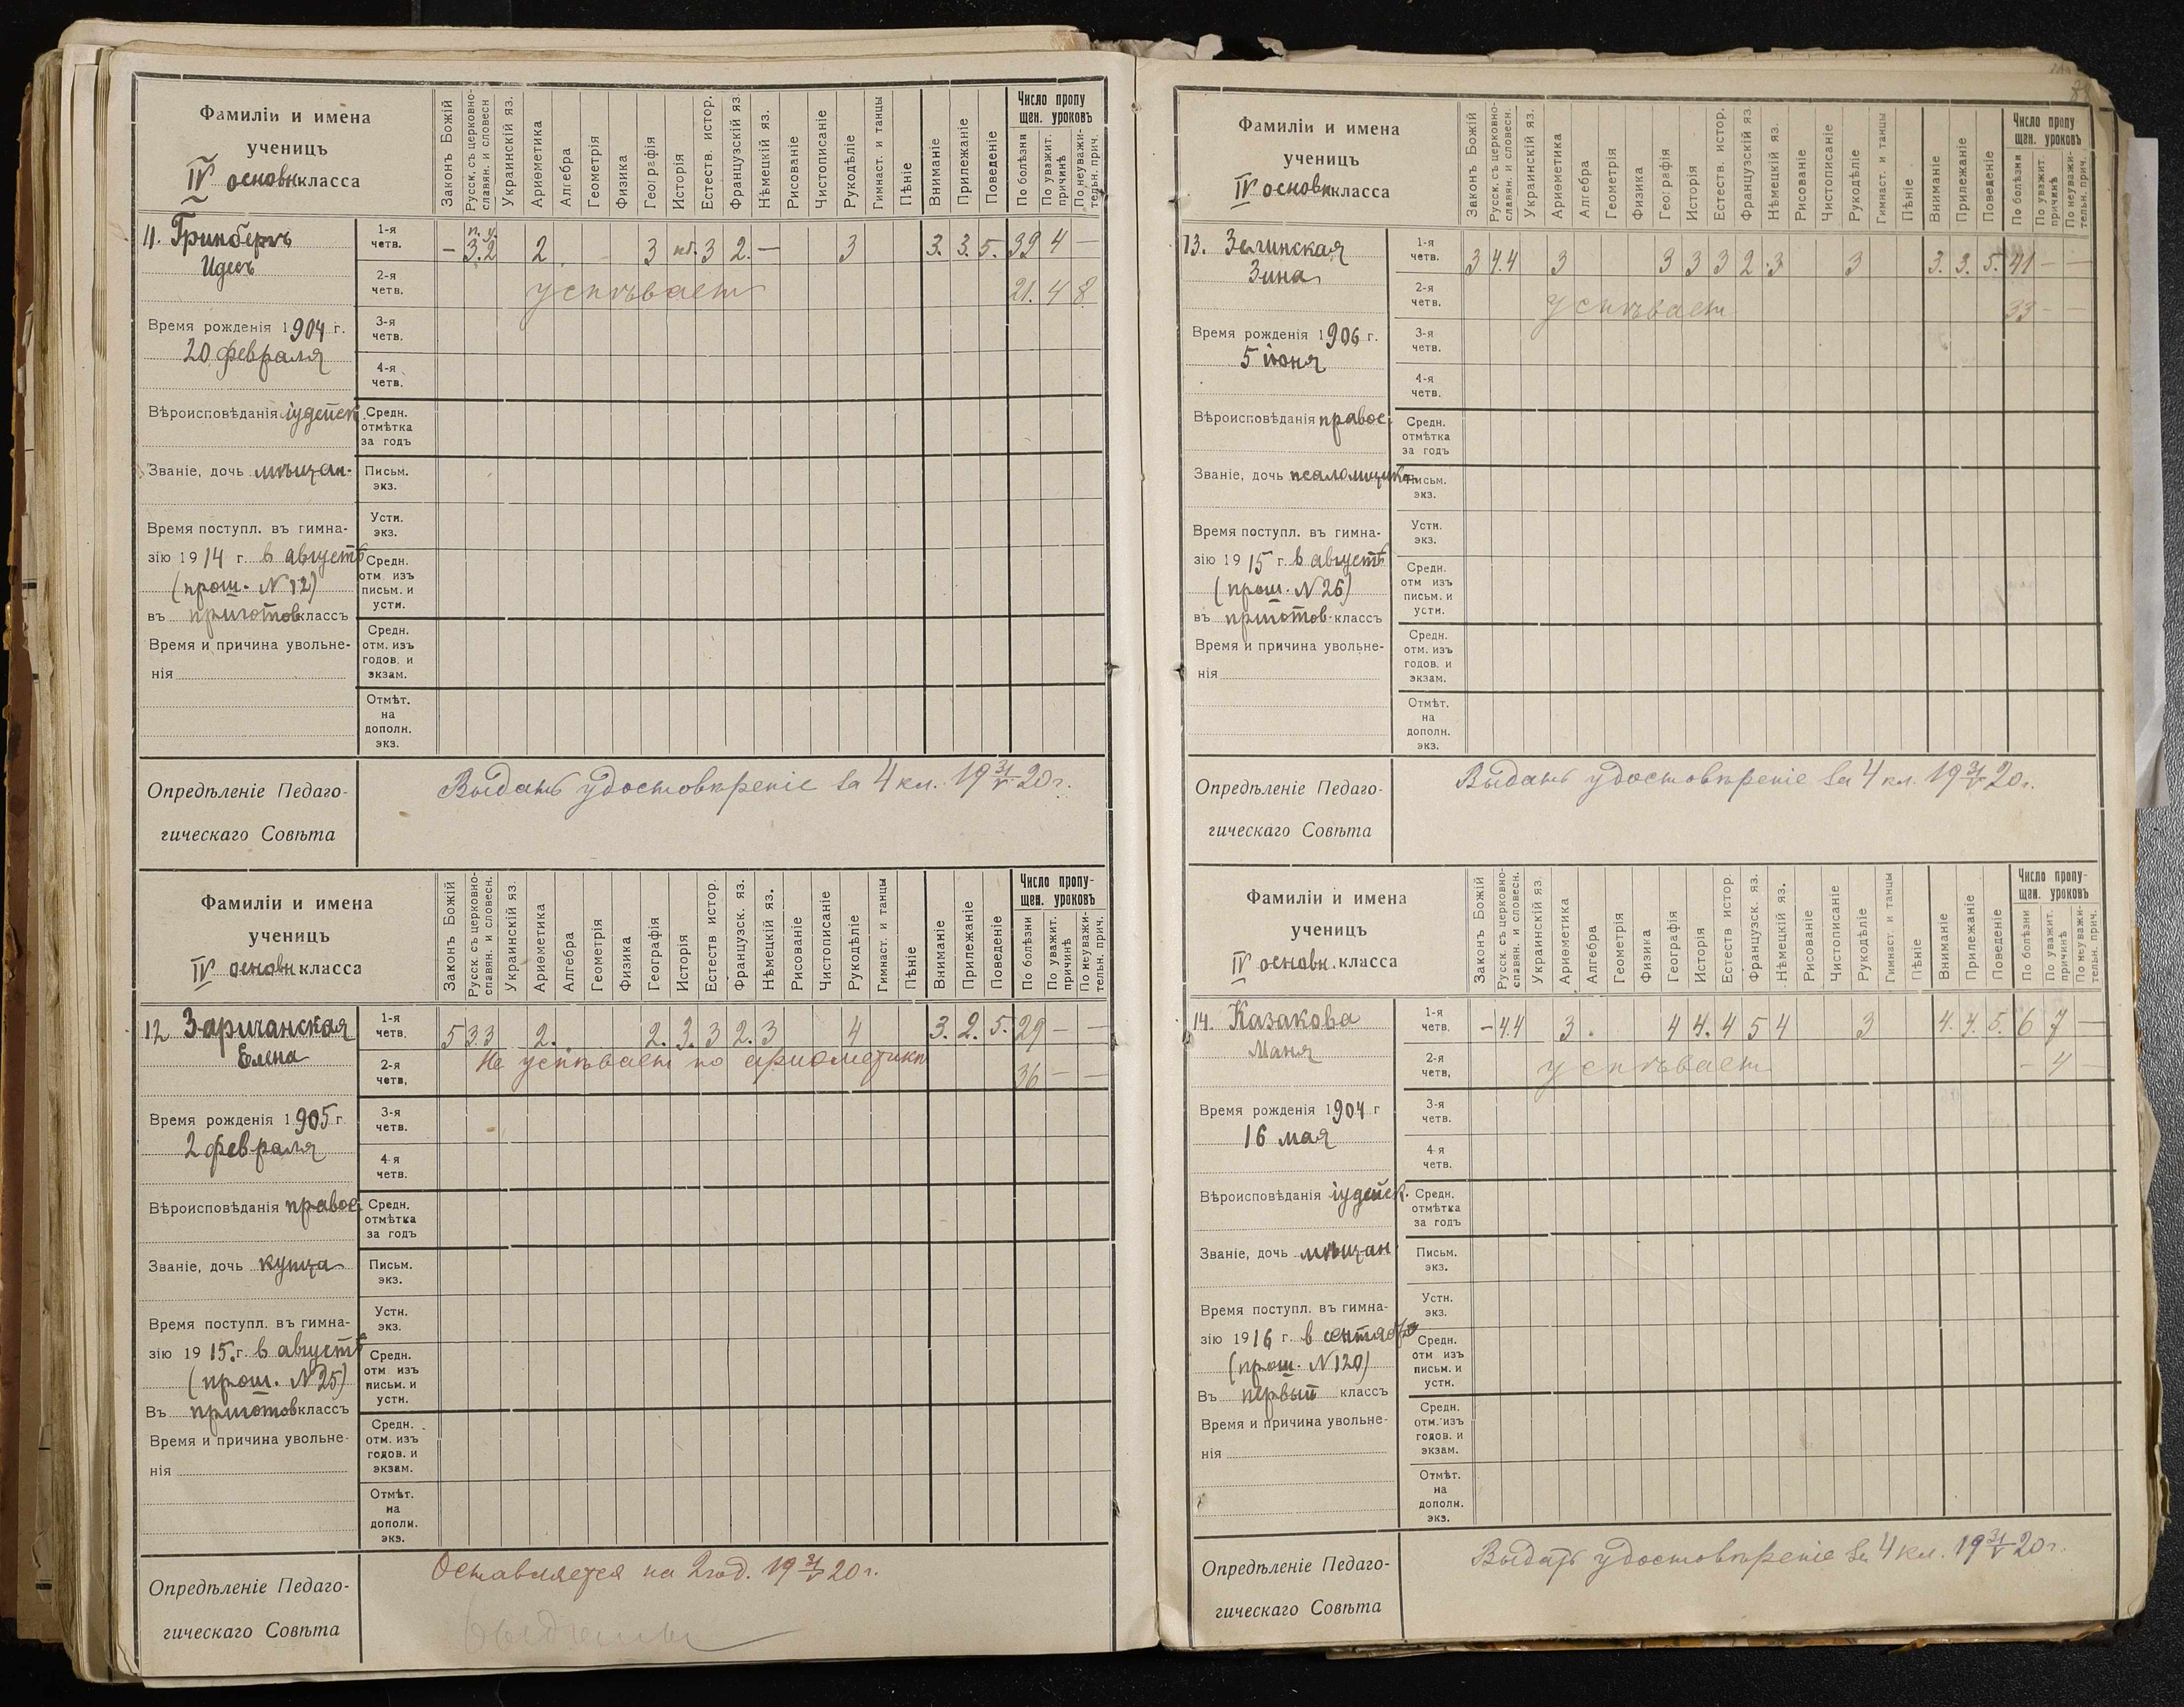 Фамиліи и имена
ученицъ
IV основн класса
Законъ Божій
Русск. съ церковно-
славян. и словесн
Украинскій яз.
Ариѳметика
Алгебра
Геометрія
Физика
Географія
Исторія
Естеств. истор.
Французскій яз
Нѣмецкій яз.
Рисованіе
Чистописаніе
Рукодѣліе
Гимнаст. и танцы
Пѣніе
Вниманіе
Прилежаніе
Поведеніе
Число пропу
щен. уроковъ
По болѣзни
По уважит.
причинѣ
По неуважи-
тельн. прич.
11. Гринбергъ
Идесъ
1-я
четв.
п. у.
— 3.2 2 3 нѣ. 3 2. — 3 3. 3. 5. 39 4 —
2-я
четв.
успѣваетъ 21. 4 8.
Время рожденія 1904 г.
20 февраля
3-я
четв.
4-я
четв.
Вѣроисповѣданія іудейск
Средн.
отмѣтка
за годъ
Званіе, дочь мѣщан.
Письм.
экз.
Время поступл. въ гимна-
зію 1914 г. в августѣ
(прош. N 12)
въ приготов классъ
Устн.
экз.
Средн.
отм изъ
письм. и
устн.
Время и причина увольне-
нія
Средн.
отм. изъ
годов. и
экзам.
Отмѣт.
на
дополн.
экз.
Опредѣленіе Педаго-
гическаго Совѣта
Выдать удостовѣреніе за 4 кл. 19 31/V 20 г.
Фамиліи и имена
ученицъ
IV основн класса
Законъ Божій
Русск. съ церковно-
славян. и словесн.
Украинскій яз.
Ариѳметика
Алгебра
Геометрія
Физика
Географія
Исторія
Естеств истор.
Французск. яз.
Нѣмецкій яз.
Рисованіе
Чистописаніе
Рукодѣліе
Гимнаст. и танцы
Пѣніе
Вниманіе
Прилежаніе
Поведеніе
Число пропу-
щен. уроковъ
По болѣзни
По уважит.
причинѣ
По неуважи-
тельн. прич.
12 Заричанская
Елена
1-я
четв.
5 3 3 2. 2. 3. 3 2. 3 4 3. 2. 5. 29 — —
2-я
четв.
Не успѣваетъ по ариѳметикѣ 36 — —
Время рожденія 1905 г
2 февраля
3-я
четв.
4-я
четв.
Вѣроисповѣданія правос.
Средн.
отмѣтка
за годъ
Званіе, дочь купца
Письм.
экз.
Время поступл. въ гимна-
зію 1915. г. в августѣ
(прош. N 25)
Въ приготов классъ
Устн.
экз.
Средн.
отм изъ
письм. и
устн.
Время и причина увольне-
нія
Средн.
отм. изъ
годов. и
экзам.
Отмѣт.
на
дополн.
экз.
Опредѣленіе Педаго-
гическаго Совѣта
Оставляется на 2 год. 19 31/V 20 г.
Фамиліи и имена
ученицъ
IV основн класса
Законъ Божій
Русск. съ церковно-
славян. и словесн.
Украинскій яз.
Ариѳметика
Алгебра
Геометрія
Физика
Географія
Исторія
Естеств. истор.
Французскій яз.
Нѣмецкій яз.
Рисованіе
Чистописаніе
Рукодѣліе
Гимнаст. и танцы
Пѣніе
Вниманіе
Прилежаніе
Поведеніе
Число пропу
щен. уроковъ
По болѣзни
По уважит
причинѣ
По неуважи-
тельн. прич.
13. Зелинская
Зина
1-я
четв.
3 4.4 3 3 3 3 2 3 3 3. 3. 5. 41 — —
2-я
четв.
успѣваетъ 33 — —
Время рожденія 1906 г.
5 іюня
3-я
четв.
4-я
четв.
Вѣроисповѣданія правос.
Средн.
отмѣтка
за годъ
Званіе, дочь псаломщика
Письм.
экз.
Время поступл. въ гимна-
зію 1915 г. в августѣ
(прош. N 26)
въ приготов. классъ
Устн.
экз.
Средн.
отм изъ
письм. и
устн.
Время и причина увольне-
нія
Средн.
отм. изъ
годов. и
экзам.
Отмѣт.
на
дополн.
экз.
Опредѣленіе Педаго-
гическаго Совѣта
Выдать удостовѣреніе за 4 кл. 19 31/V 20 г.
Фамиліи и имена
ученицъ
IV основн. класса
Законъ Божій
Русск. съ церковно-
славян. и словесн.
Украинскій яз.
Ариѳметика
Алгебра
Геометрія
Физика
Географія
Исторія
Естеств истор.
Французск. яз.
Нѣмецкій яз.
Рисованіе
Чистописаніе
Рукодѣліе
Гимнаст. и танцы
Пѣніе
Вниманіе
Прилежаніе
Поведеніе
Число пропу-
щен. уроковъ
По болѣзни
По уважит.
причинѣ
По неуважи-
тельн. прич.
14. Казакова
Маня
1-я
четв.
— 4.4 3. 4 4. 4 5 4 3 4. 4. 5. 6 7 —
2-я
четв,
успѣваетъ — 4 —
Время рожденія 1904 г
16 мая
3-я
четв.
4-я
четв.
Вѣроисповѣданія іудейск.
Средн.
отмѣтка
за годъ
Званіе, дочь мѣщан
Письм.
экз.
Время поступл. въ гимна-
зію 1916 г. в сентябрѣ
(прош. N 120)
Въ первый классъ
Устн.
экз.
Средн.
отм изъ
письм. и
устн.
Время и причина увольне-
нія
Средн.
отм. изъ
годов. и
экзам.
Отмѣт.
на
дополн.
экз.
Опредѣленіе Педаго-
гическаго Совѣта
Выдать удостовѣреніе за 4 кл. 19 31/V 20 г.